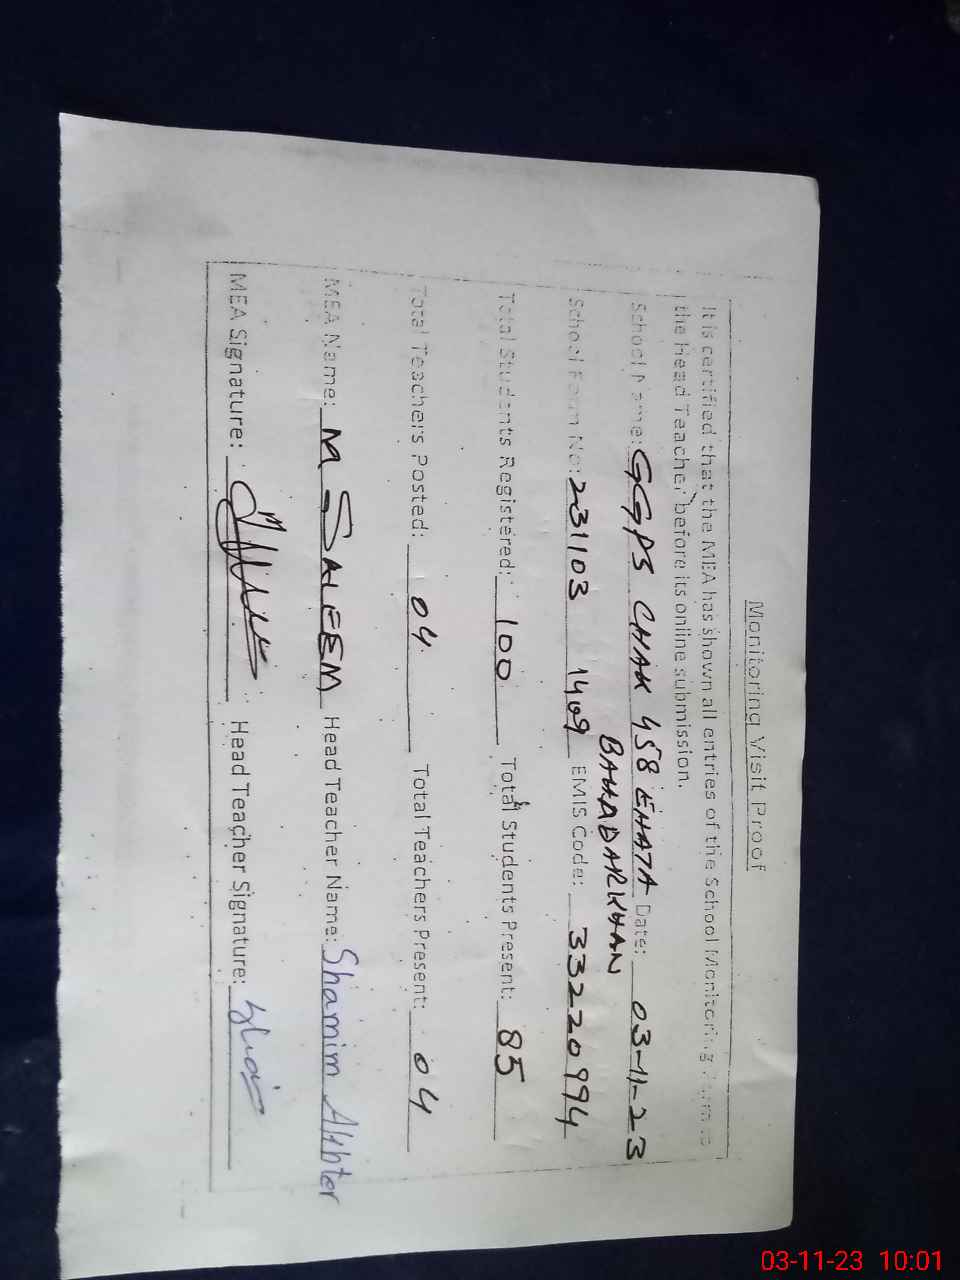 Monitoring Visit Proof
It is certified that the MEA has shown all entries of the School Monitoring Form to
the Head Teacher before its online submission.
School Name: GGPS CHAK 458 EHATA Date: 03-11-23
BAHADARKHAN
School Form No: 231103 1409 EMIS Code: 33220994
Total Students Registered: 100 Total Students Present: 85
Total Teachers Posted: 04 Total Teachers Present: 04
MEA Name: M SALEEM Head Teacher Name: Shamim Akhter
MEA Signature: Head Teacher Signature:
03-11-23 10:01